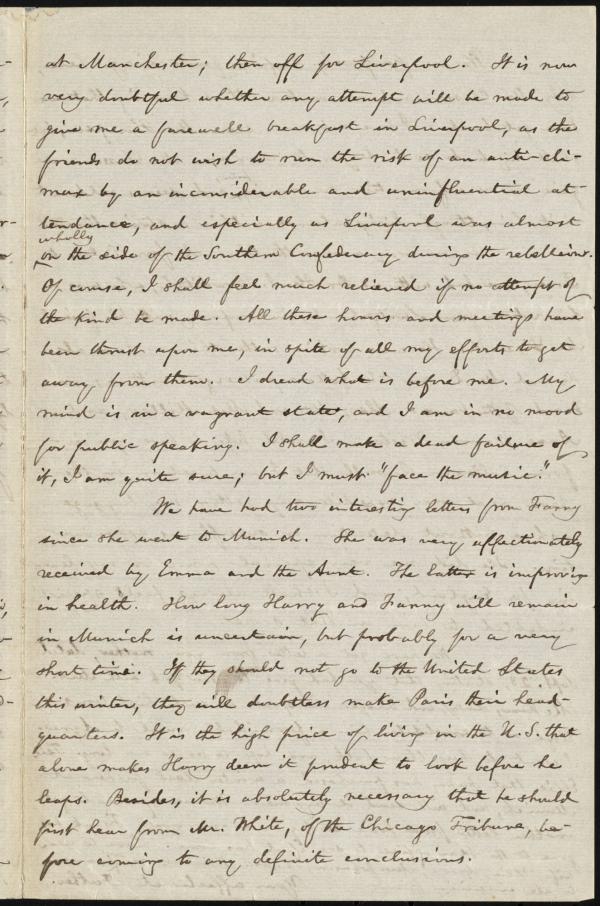 at Manchester; then off for Liverpool. It is now
very doubtful whether any attempt will be made to
give me a farewell breakfast in Liverpool, as the
friends do not wish to run the risk of an anti-cli-
max by an inconsiderable and uninfluential at-
tendance, and especially as Liverpool was almost
wholly
on the side of the Southern Confederacy during the rebellion.
Of course, I shall feel much relieved if no attempt of
the kind be made. All these honors and meetings have
been thrust upon me, in spite of all my efforts to get
away from them. I dread what is before me. My
mind is in a vagrant state, and I am in no mood
for public speaking. I shall make a dead failure of
it, I am quite sure; but I must "face the music."
We have had two interesting letters from Fanny
since she went to Munich. She was very affectionately
received by Emma and the Aunt. The latter is improving
in health. How long Harry and Fanny will remain
in Munich is uncertain, but probably for a very
short time. If they should not go to the United States
this winter, they will doubtless make Paris their head-
quarters. It is the high price of living in the U.S. that
alone makes Harry deem it prudent to look before he
leaps. Besides, it is absolutely necessary that he should
first hear from Mr. White, of the Chicago Tribune, be-
fore coming to any definite conclusions.